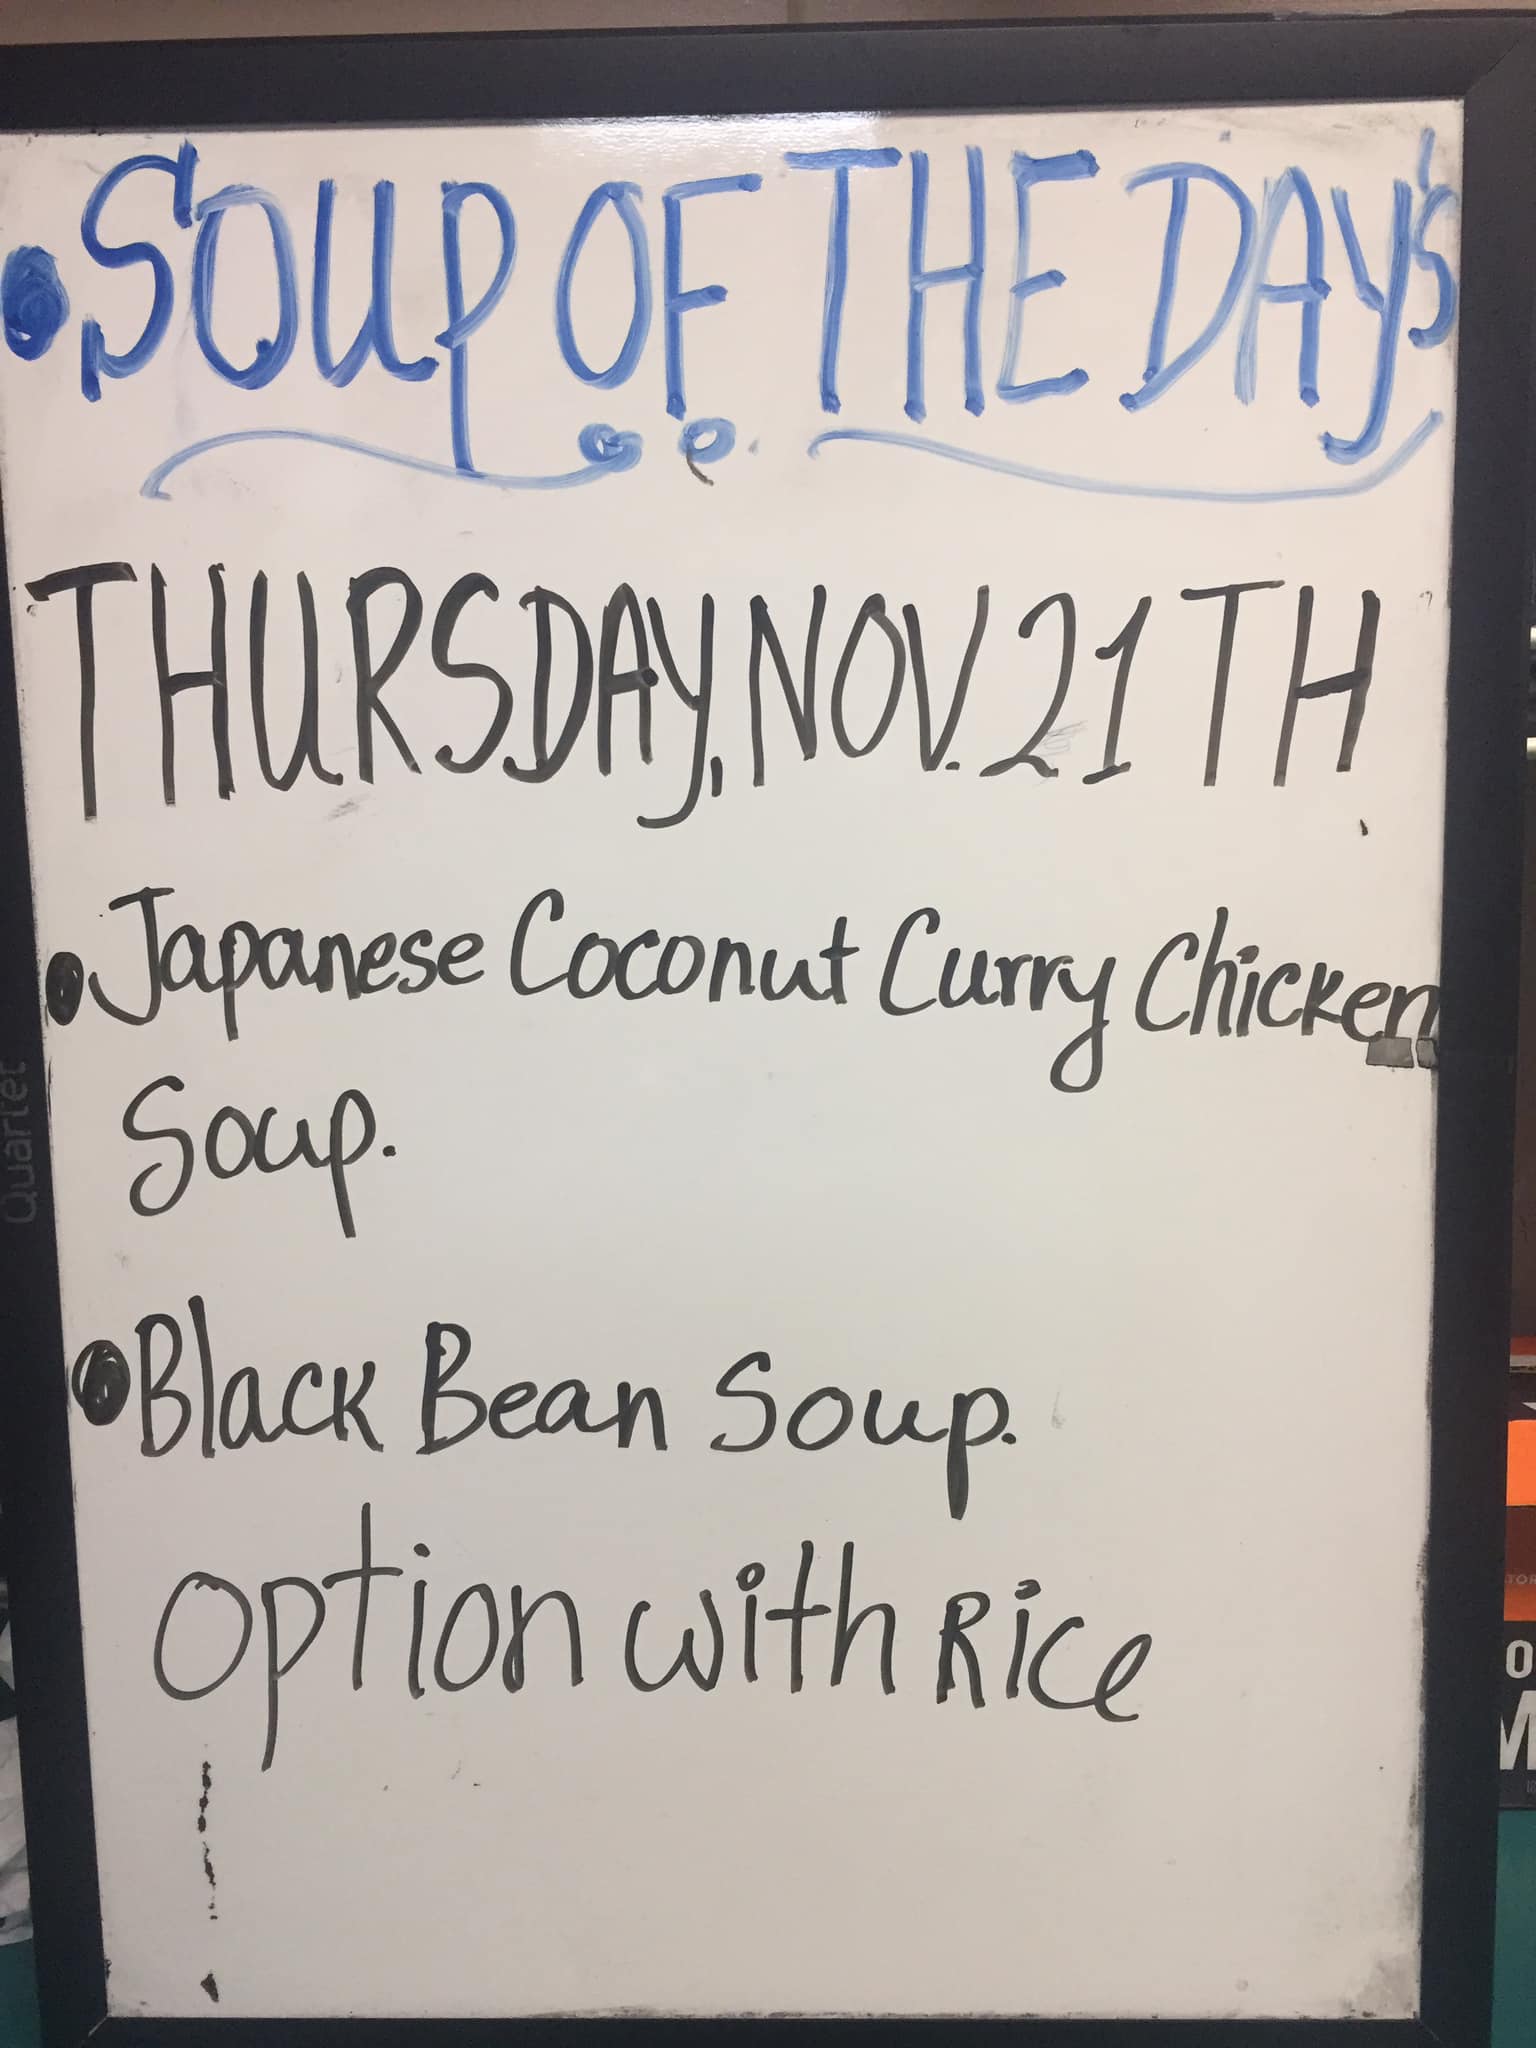 • SOUP OF THE DAY'S
THURSDAY, NOV. 21TH
• Japanese Coconut Curry Chicken
Soup.
• Black Bean Soup.
option with Rice
Quartet